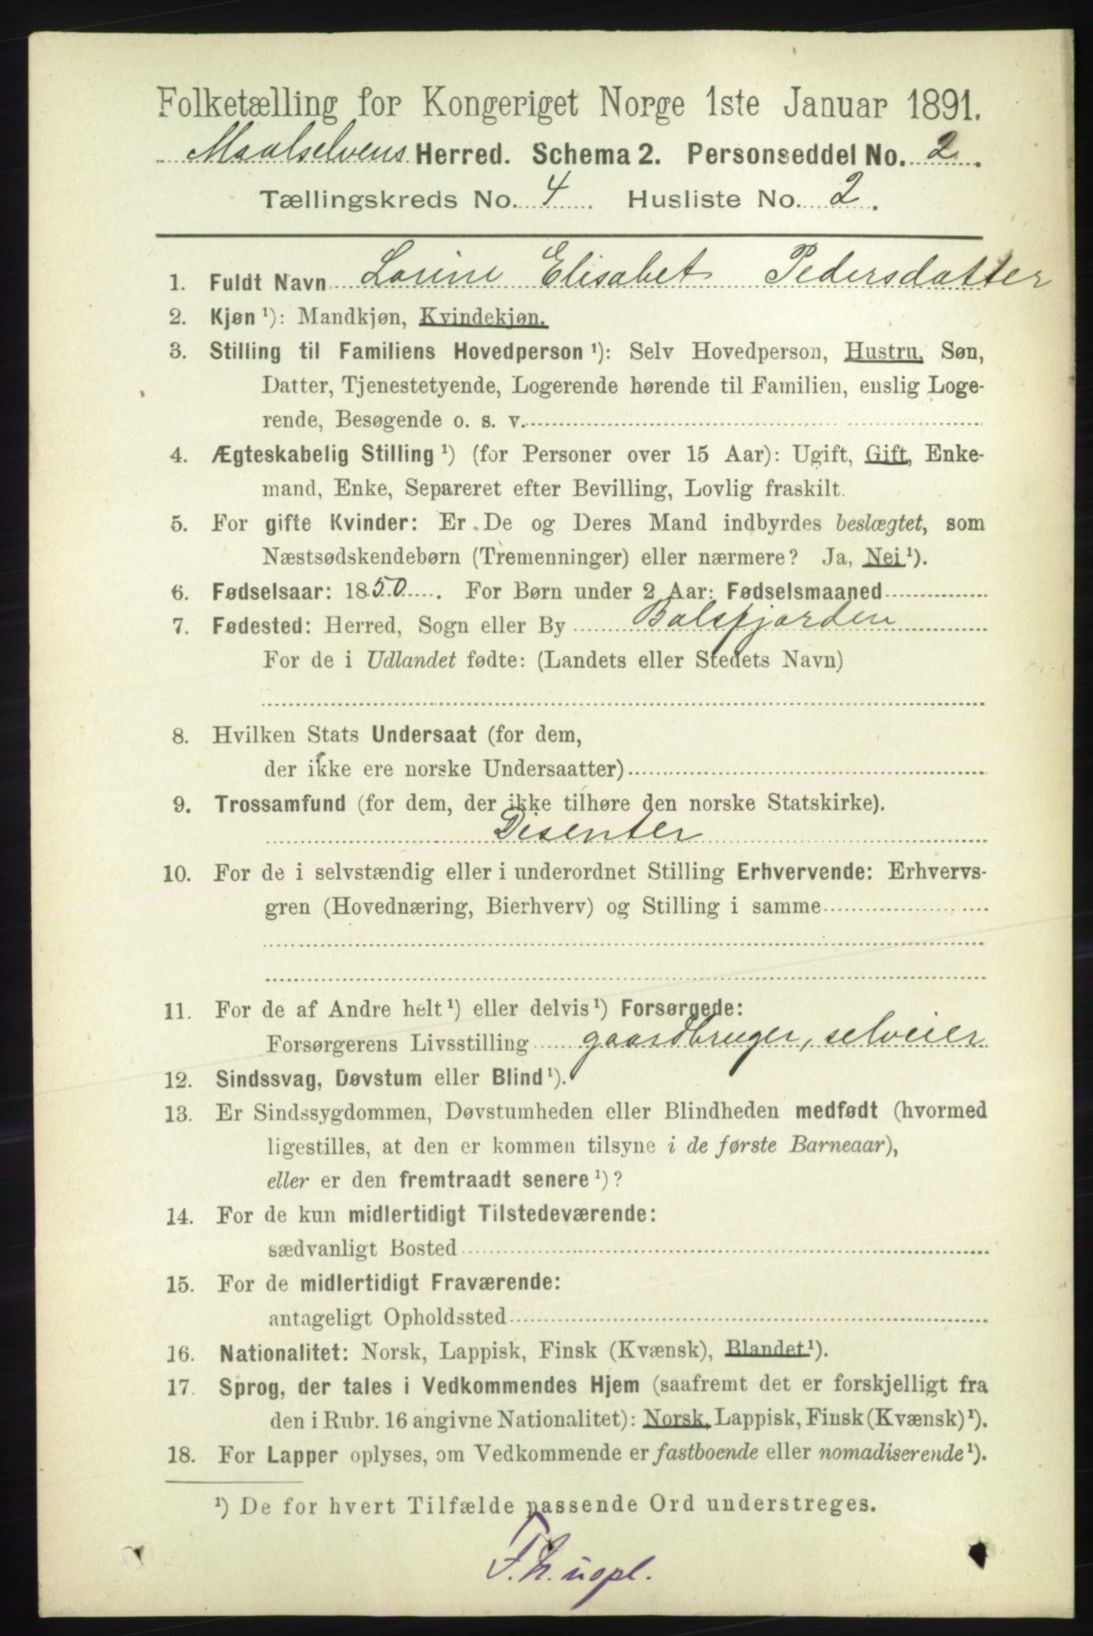 Folketælling for Kongeriget Norge 1ste Januar 1891.
Maalselvens Herred. Schema 2. Personseddel No. 2.
Tællingskreds No. 4 Husliste No. 2.
1. Fuldt Navn Lorine Elisabet Pedersdatter
2. Kjøn ¹): Mandkjøn, Kvindekjøn.
3. Stilling til Familiens Hovedperson ¹): Selv Hovedperson, Hustru, Søn,
Datter, Tjenestetyende, Logerende hørende til Familien, enslig Loge-
rende, Besøgende o. s. v.
4. Ægteskabelig Stilling ¹) (for Personer over 15 Aar): Ugift, Gift, Enke-
mand, Enke, Separeret efter Bevilling, Lovlig fraskilt.
5. For gifte Kvinder: Er De og Deres Mand indbyrdes beslægtet, som
Næstsødskendebørn (Tremenninger) eller nærmere? Ja, Nei ¹).
6. Fødselsaar: 1850. For Børn under 2 Aar: Fødselsmaaned
7. Fødested: Herred, Sogn eller By Balsfjorden
For de i Udlandet fødte: (Landets eller Stedets Navn)
8. Hvilken Stats Undersaat (for dem,
der ikke ere norske Undersaatter)
9. Trossamfund (for dem, der ikke tilhøre den norske Statskirke).
Disenter
10. For de i selvstændig eller i underordnet Stilling Erhvervende: Erhvervs-
gren (Hovednæring, Bierhverv) og Stilling i samme
11. For de af Andre helt ¹) eller delvis ¹) Forsørgede:
Forsørgerens Livsstilling gaardbruger, selveier
12. Sindssvag, Døvstum eller Blind ¹).
13. Er Sindssygdommen, Døvstumheden eller Blindheden medfødt (hvormed
ligestilles, at den er kommen tilsyne i de første Barneaar),
eller er den fremtraadt senere ¹)?
14. For de kun midlertidigt Tilstedeværende:
sædvanligt Bosted
15. For de midlertidigt Fraværende:
antageligt Opholdssted
16. Nationalitet: Norsk, Lappisk, Finsk (Kvænsk), Blandet ¹).
17. Sprog, der tales i Vedkommendes Hjem (saafremt det er forskjelligt fra
den i Rubr. 16 angivne Nationalitet): Norsk, Lappisk, Finsk (Kvænsk) ¹).
18. For Lapper oplyses, om Vedkommende er fastboende eller nomadiserende ¹).
¹) De for hvert Tilfælde passende Ord understreges.